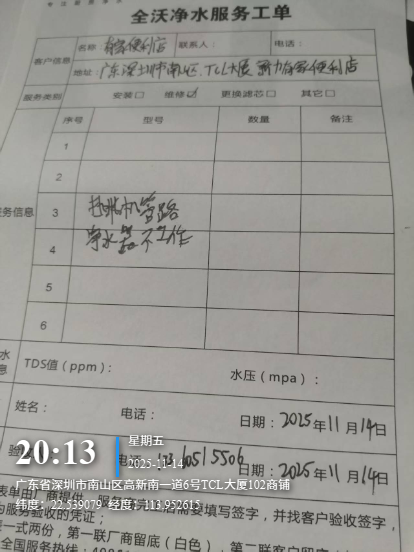 专注商用净水
全沃净水服务工单
客户信息
名称 有家便利店 联系人: 电话:
地址: 广东深圳市南山区.TCL大厦 便利店
服务类别 安装□ 维修☑ 更换滤芯□ 其它□
序号 型号 数量 备注
1
2
务信息 3 扎啤机管路
4 净水器不工作
5
6
水 息 TDS值(ppm): 水压(mpa):
姓名: 电话: 日期: 2025年11月14日
验 电话 13360515506 日期: 2025年11月14日
20:13
星期五
2025-11-14
广东省深圳市南山区高新南一道6号TCL大厦102商铺
纬度: 22.539079 经度: 113.952615
表单由厂商提供,服务 填写签字,并找客户验收签字,
为服务验收的凭证;
一式两份,第一联厂商留底(白色),第二联客户留底
全国服务热线: